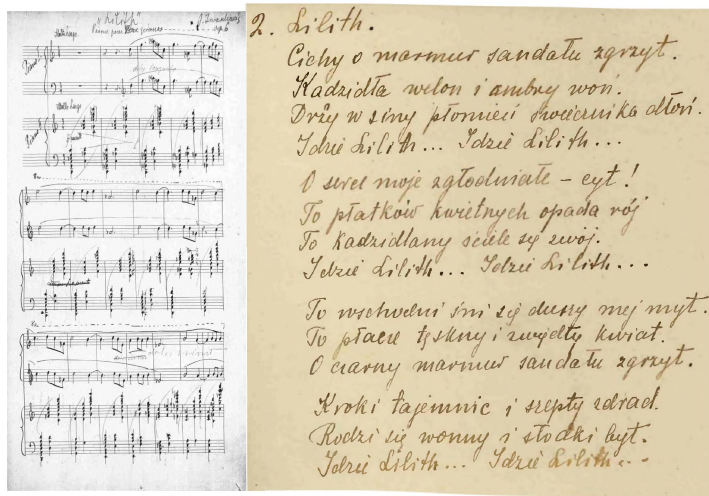 „Lilith”
Poème pour Piano
op. 6
Molto Largo
Piano
Molto Largo
Piano
2. Lilith.
Cichy o marmur sandału zgrzyt.
Kadzidła welon i ambry woń.
Drży w siny płomień świecznika dłoń.
Idzie Lilith... Idzie Lilith...
O serce moje zgłodniałe – cyt!
To płatków kwietnych opada rój
To kadzidlany ściele się zwój.
Idzie Lilith... Idzie Lilith...
To wschodni śni się duszy mej myt.
To płacze tęskny i zwiędły kwiat.
O czarny marmur sandału zgrzyt.
Kroki tajemnic i szepty zdrad.
Rodzi się wonny i słodki byt.
Idzie Lilith... Idzie Lilith...